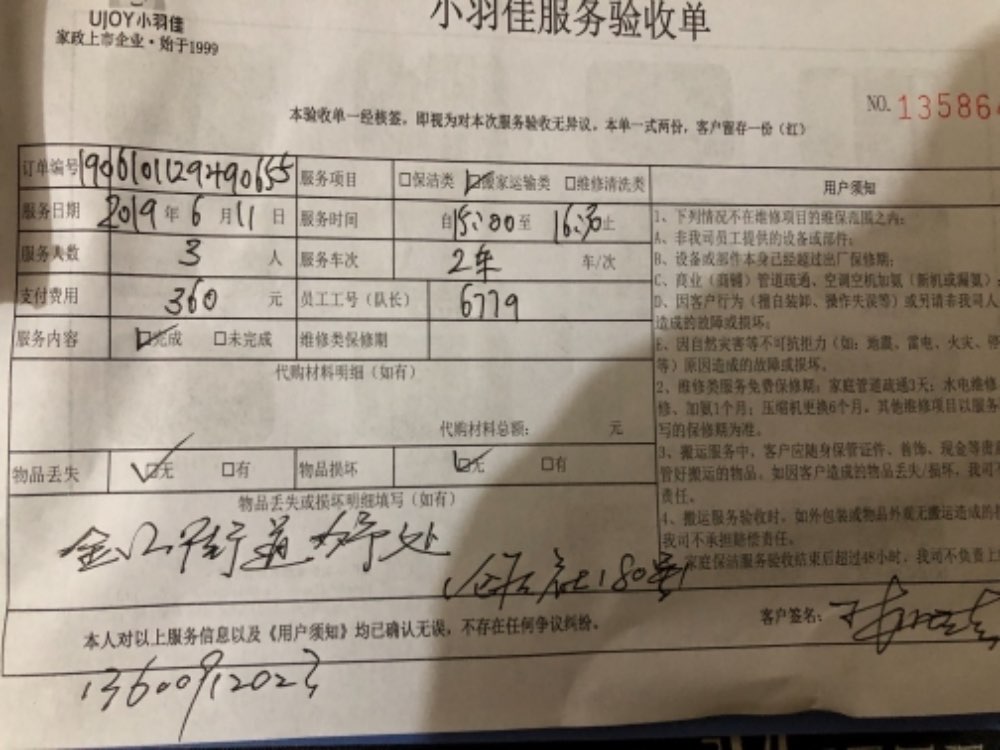 UJOY小羽佳
家政上市企业·始于1999
小羽佳服务验收单
NO. 13586
本验收单一经核签，即视为对本次服务验收无异议。本单一式两份，客户留存一份（红）
订单编号 1906101129490655 服务项目 □保洁类 ☑搬家运输类 □维修清洗类
服务日期 2019年6月11日 服务时间 自15:00至16:30止
服务人数 3人 服务车次 2车 车/次
支付费用 360元 员工工号（队长） 6779
服务内容 ☑完成 □未完成 维修类保修期
代购材料明细（如有）
代购材料总额： 元
物品丢失 ☑无 □有 物品损坏 ☑无 □有
物品丢失或损坏明细填写（如有）
金山街道办事处
180号
本人对以上服务信息以及《用户须知》均已确认无误，不存在任何争议纠纷。
客户签名：
13600912023
用户须知
1、下列情况不在维修项目的维保范围之内：
A、非我司员工提供的设备或部件；
B、设备或部件本身已经超过出厂保修期；
C、商业（商铺）管道疏通、空调空机加氨（新机或漏氨）
D、因客户行为（擅自装卸、操作失误等）或另请非我司人
造成的故障或损坏；
E、因自然灾害等不可抗拒力（如：地震、雷电、火灾、
等）原因造成的故障或损坏。
2、维修类服务免费保修期：家庭管道疏通3天；水电维修
修、加氨1个月；压缩机更换6个月，其他维修项目以服务
写的保修期为准。
3、搬运服务中，客户应随身保管证件、首饰、现金等贵
管好搬运的物品。如因客户造成的物品丢失/损坏，我司
责任。
4、搬运服务验收时，如外包装或物品外观无搬运造成的
我司不承担赔偿责任。
家庭保洁服务验收结束后超过48小时，我司不负责上